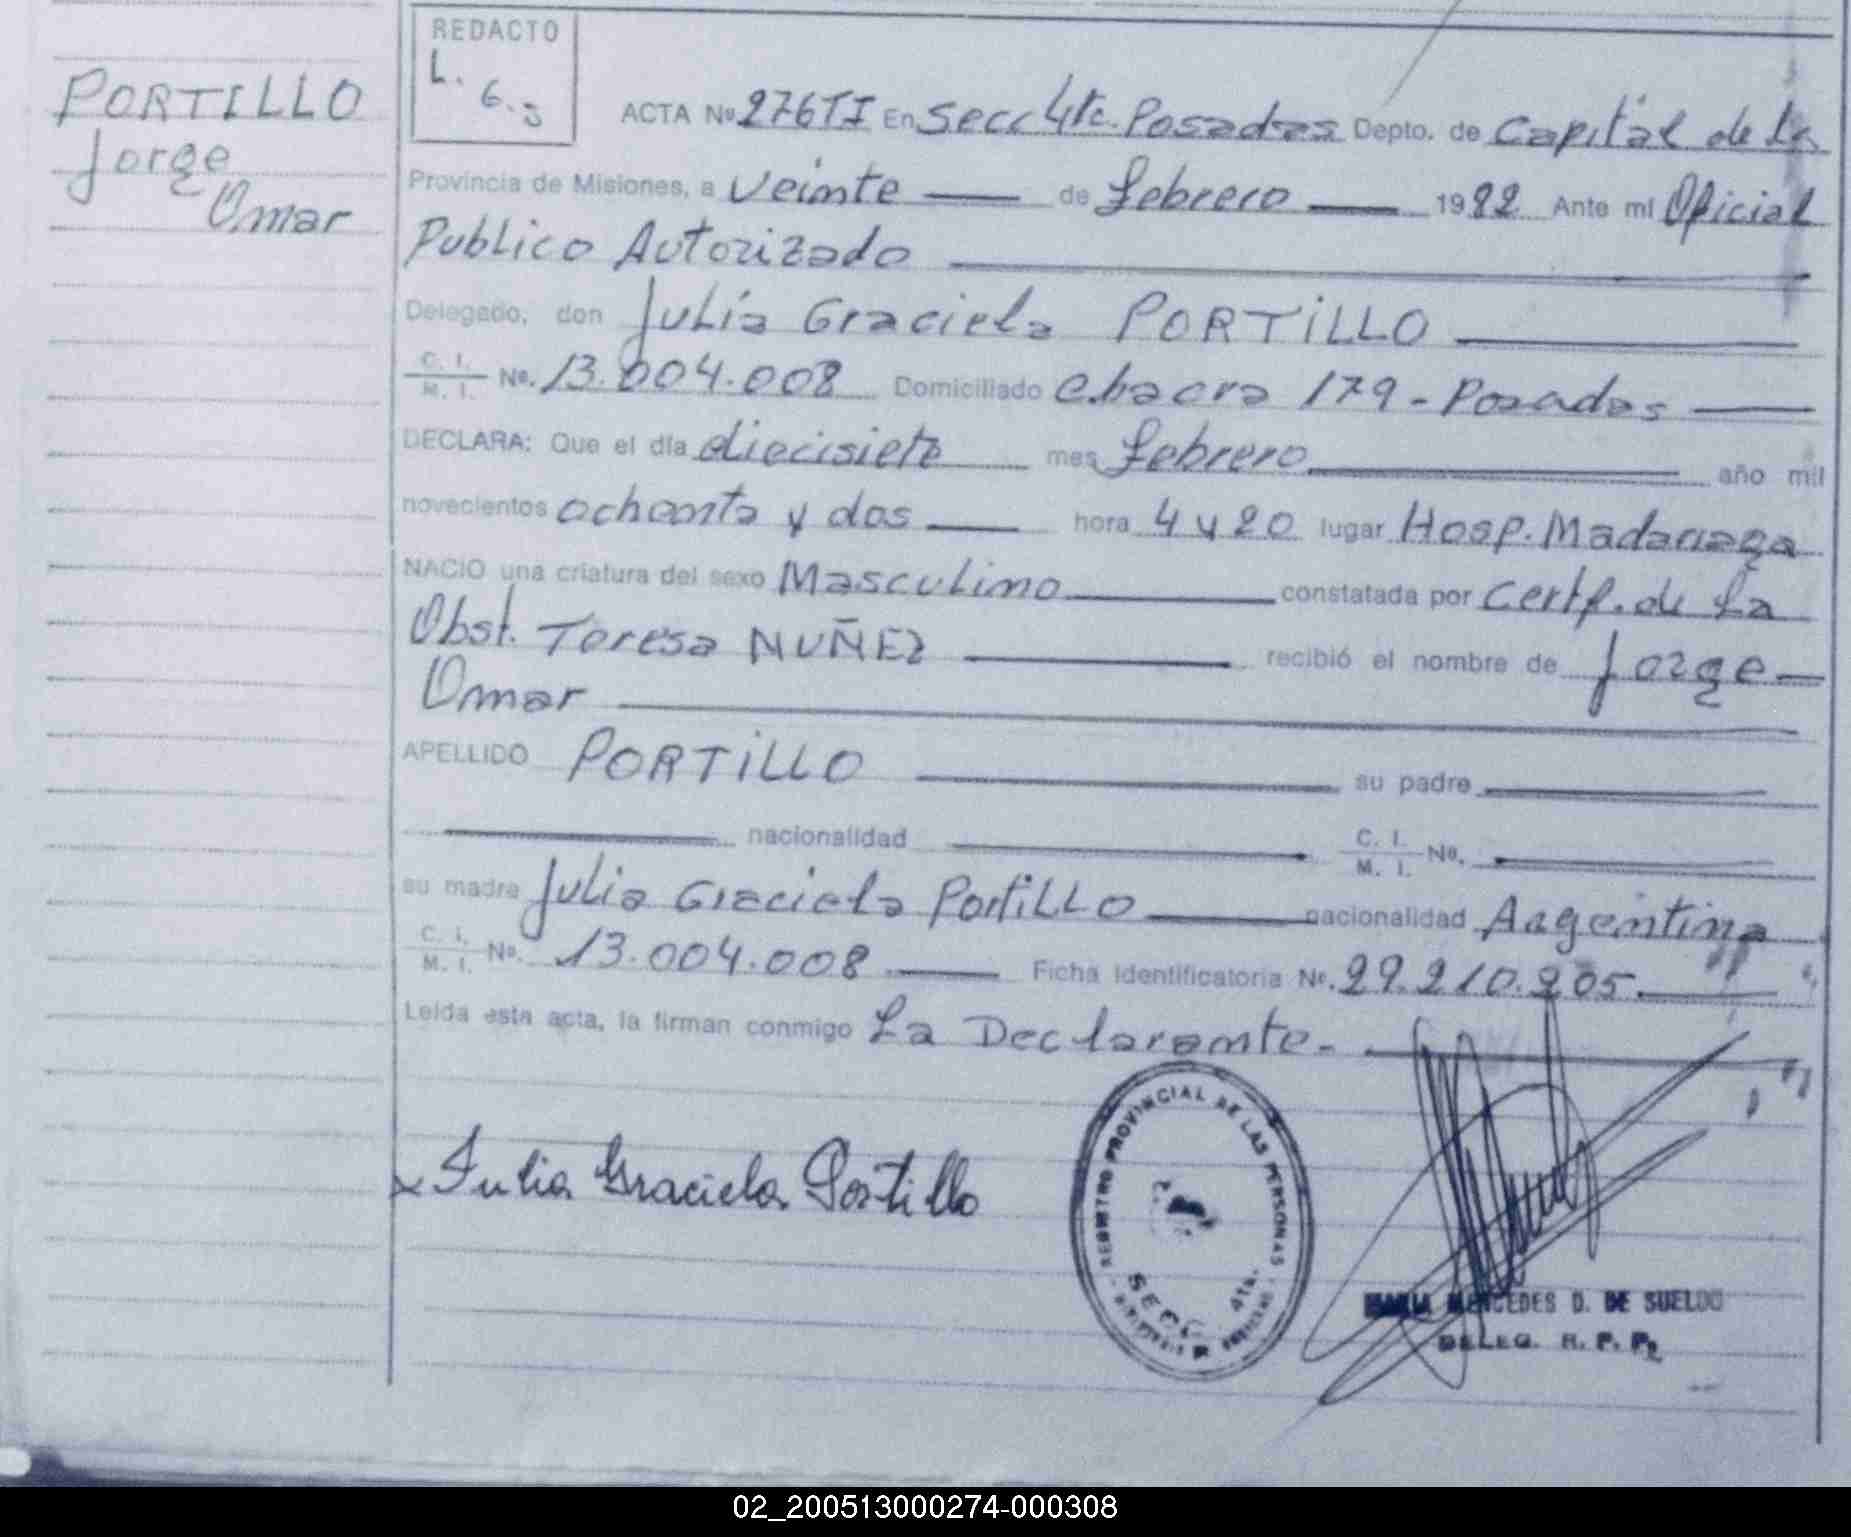 REDACTO
L.
G. J
PORTILLO
Jorge
Omar
ACTA Nº 276TI En Secc 4ta. Posadas Depto. de Capital de La
Provincia de Misiones, a Veinte de febrero 1982 Ante mi Oficial
Publico Autorizado
Delegado, don Julia Graciela PORTILLO
C. I. M. I. Nº. 13.004.008 Domiciliado Chacra 179 - Posadas
DECLARA: Que el día diecisiete mes febrero año mil
novecientos ochenta y dos hora 4 y 20 lugar Hosp. Madariaga
NACIO una criatura del sexo Masculino constatada por Certf. de La
Obst. Teresa NUÑEZ recibió el nombre de Jorge
Omar
APELLIDO PORTILLO su padre
nacionalidad C. I. M. I. Nº.
su madre Julia Graciela PortiLLO nacionalidad Argentina
C. I. M. I. Nº. 13.004.008 Ficha Identificatoria Nº. 29.210.205.
Leída esta acta, la firman conmigo La Declarante.-
x Julia Graciela Portillo
REGISTRO PROVINCIAL DE LAS PERSONAS
SECC. 4ta.
MARIA MERCEDES D. DE SUELDO
DELEG. R. P. P.
02_200513000274-000308